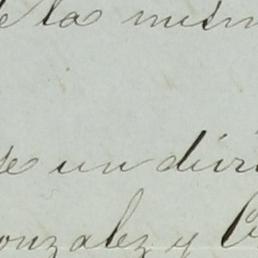 de la mism
se un divi
onzalez y C